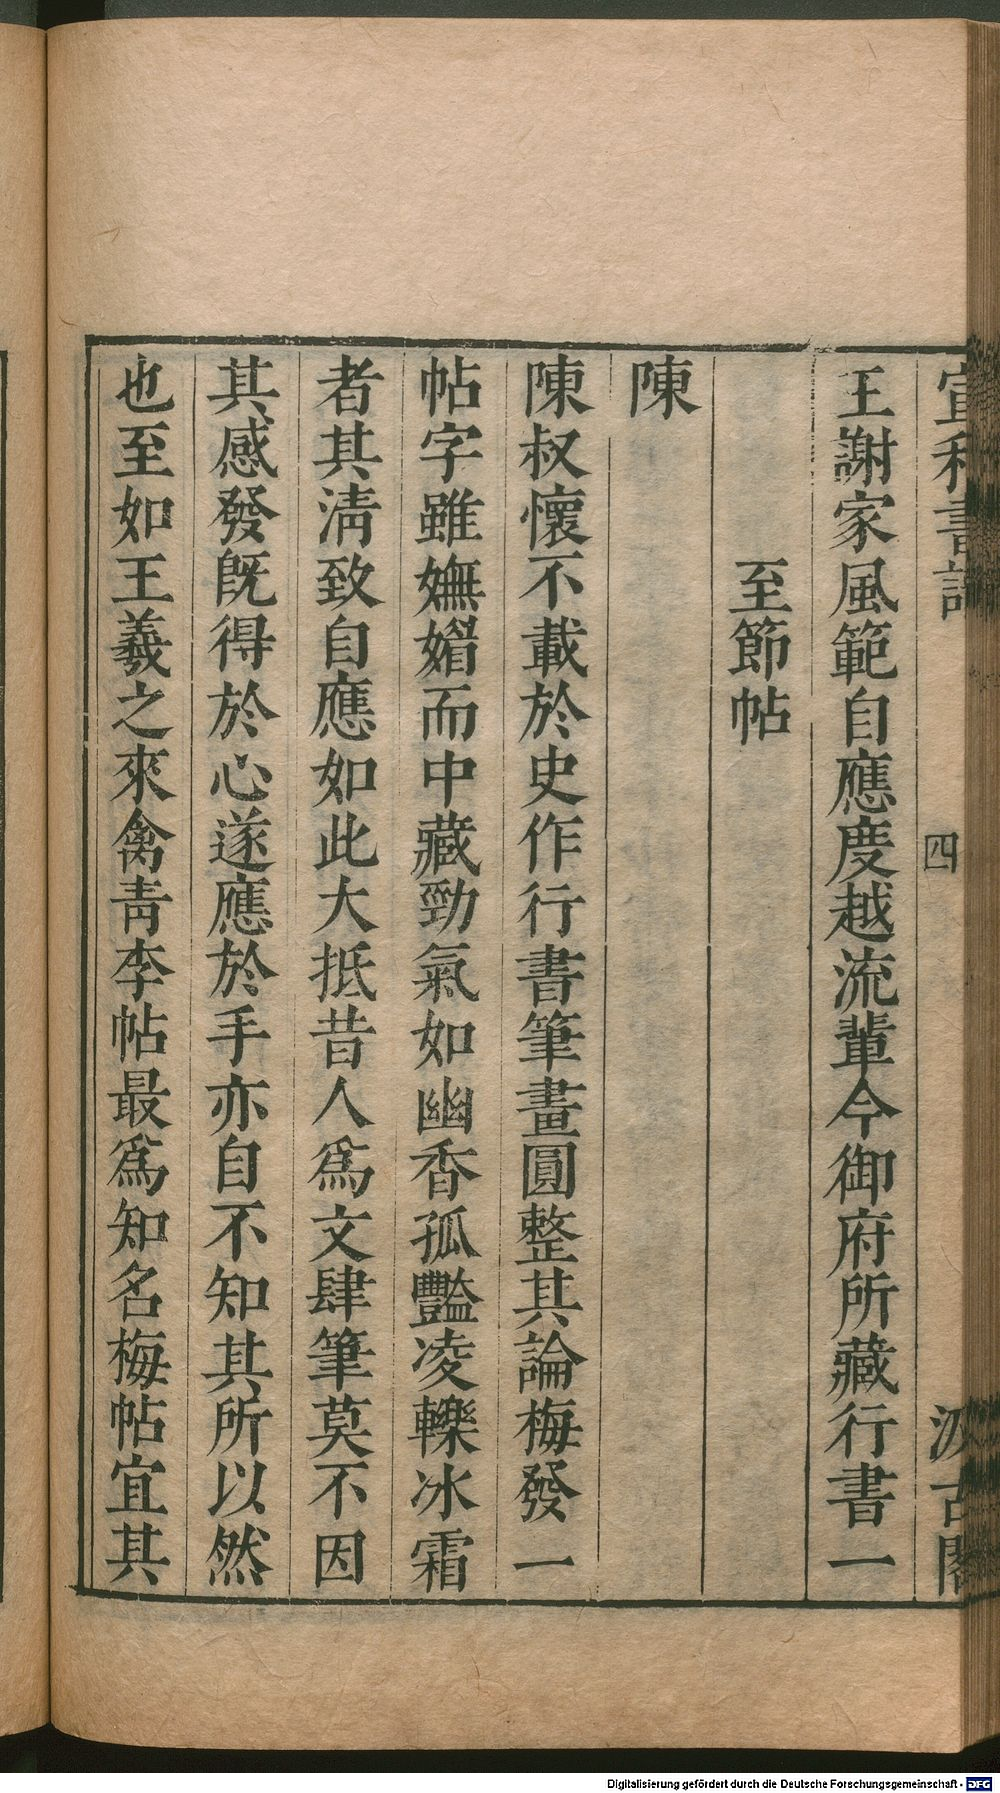 宣和書譜 四 汲古閣
王謝家風範自應慶越流輩今御府所藏行書一
至節帖
陳
陳叔懷不載於史作行書筆畫圓整其論梅發一
帖字雖嫵媚而中藏勁氣如幽香孤豔凌轢冰霜
者其清致自應如此大抵昔人爲文肆筆莫不因
其感發旣得於心遂應於手亦自不知其所以然
也至如王羲之來禽青李帖最爲知名梅帖宜其
Digitalisierung gefördert durch die Deutsche Forschungsgemeinschaft - DFG